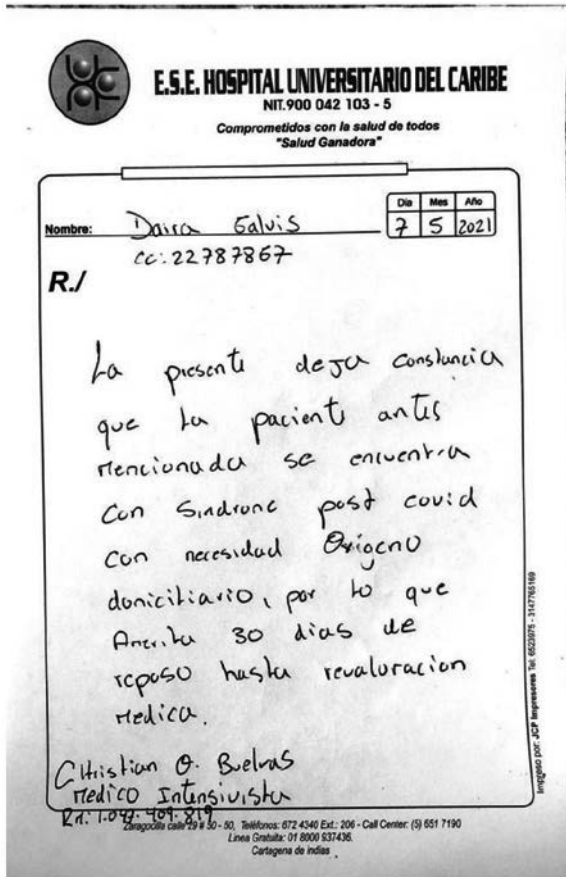 E.S.E. HOSPITAL UNIVERSITARIO DEL CARIBE
NIT.900 042 103 - 5
Comprometidos con la salud de todos
"Salud Ganadora"
Dia Mes Año
Nombre: Daira Galvis 7 5 2021
cc: 22787867
R./
La presente deja constancia
que la paciente antes
mencionada se encuentra
con sindrome post covid
con necesidad Oxigeno
domiciliario, por lo que
Amerita 30 dias de
reposo hasta revaloracion
medica.
Christian O. Buelvas
Medico Intensivista
1.047.409.819
Zaragocilla calle 29 # 50 - 50, Teléfonos: 672 4340 Ext.: 206 - Call Center: (5) 651 7190
Linea Gratuita: 01 8000 937436.
Cartagena de indias
Impreso por: JCP Impresores Tel: 6523975 - 3147765169